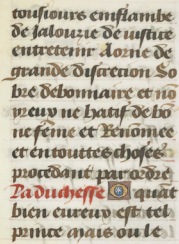 tousiours emflambe
de Jalouzie de iustice
entretenir Aorne de
grande discretion So
bre debonnaire et no
preux ne hatif de bo
ne feme et Renomee
et en touttes choses
procedant par ordre
La duchesse O quāt
bien eureux est tel
prince mais ou le